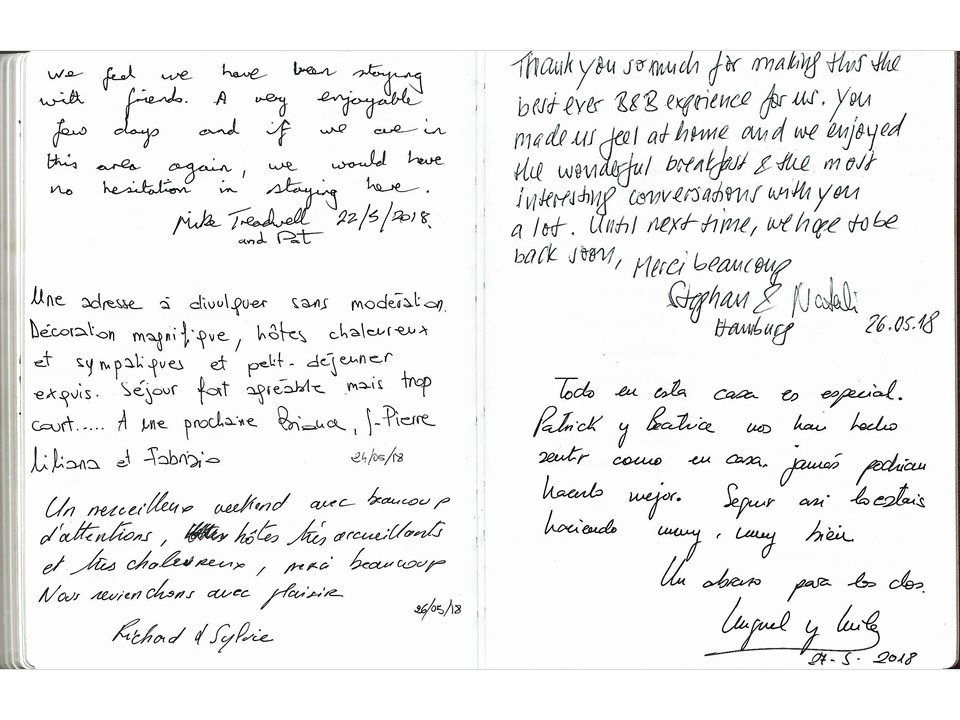 we feel we have been staying
with friends. A very enjoyable
few days and if we are in
this area again, we would have
no hesitation in staying here.
Mike Treadwell 22/5/2018.
and Pat
Une adresse à divulguer sans modération.
Décoration magnifique, hôtes chaleureux
et sympatiques et petit-déjeuner
exquis. Séjour fort agréable mais trop
court..... A une prochaine Bianca, J-Pierre
Liliana et Fabrizio 24/05/18
Un merveilleux weekend avec beaucoup
d'attentions, hôtes très accueillants
et très chaleureux, merci beaucoup
Nous reviendrons avec plaisir
26/05/18
Richard & Sylvie
Thank you so much for making this the
best ever B&B experience for us. You
made us feel at home and we enjoyed
the wonderful breakfast & the most
interesting conversations with you
a lot. Until next time, we hope to be
back soon, Merci beaucoup
Stephan & Natali
Hamburg 26.05.18
Todo en esta casa es especial.
Patrick y Beatrice nos han hecho
sentir como en casa. jamás podrian
hacerlo mejor. Seguir asi lo estais
haciendo muy, muy bien
Un abrazo para los dos.
Miguel y
27-5-2018